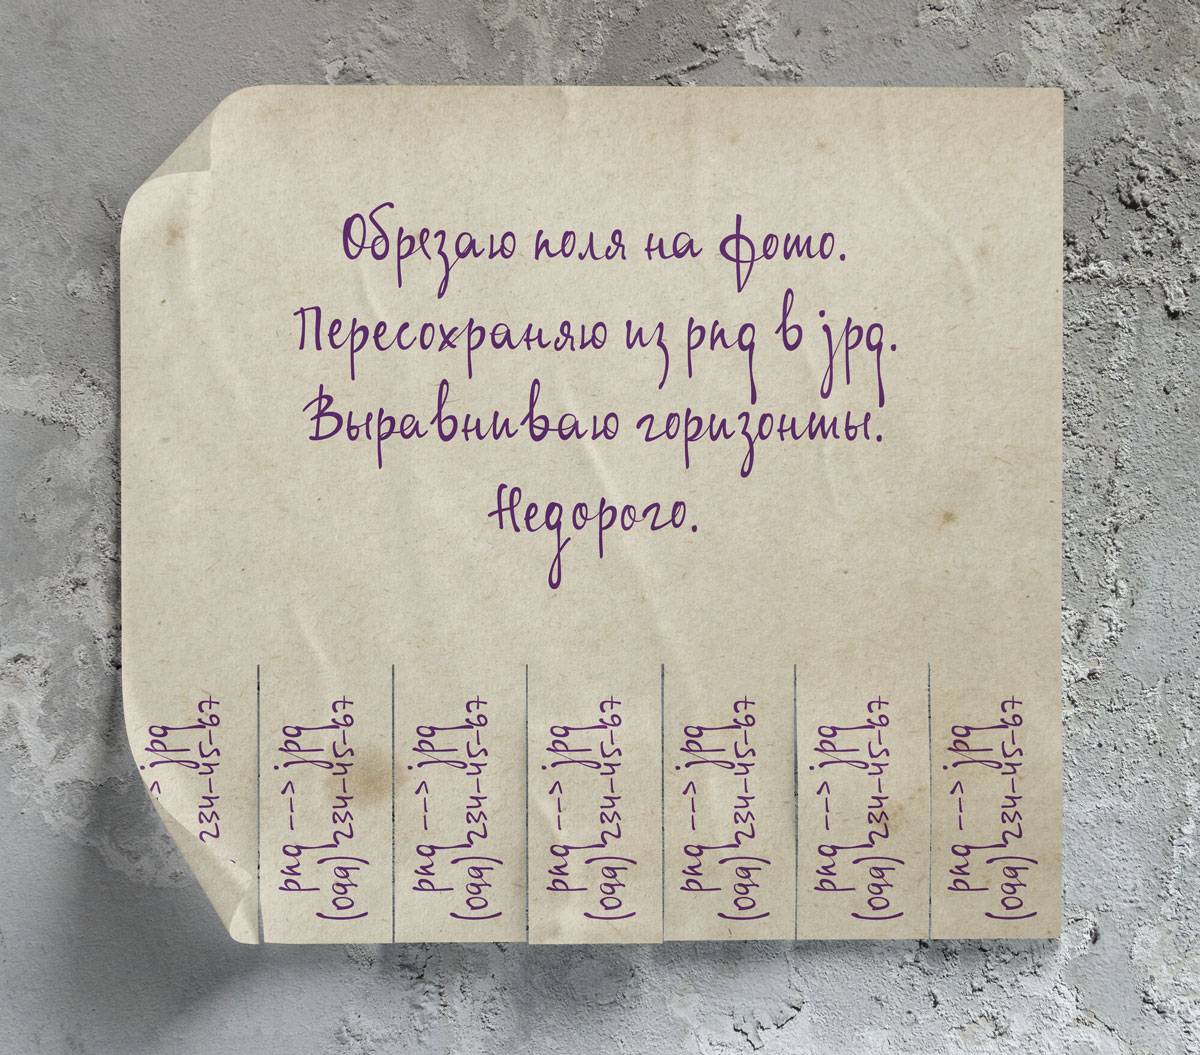 Обрезаю поля на фото.
Пересохраняю из png в jpg.
Выравниваю горизонты.
Недорого.
> jpg
234-45-67
png ---> jpg
(099) 234-45-67
png ---> jpg
(099) 234-45-67
png ---> jpg
(099) 234-45-67
png ---> jpg
(099) 234-45-67
png ---> jpg
(099) 234-45-67
png ---> jpg
(099) 234-45-67